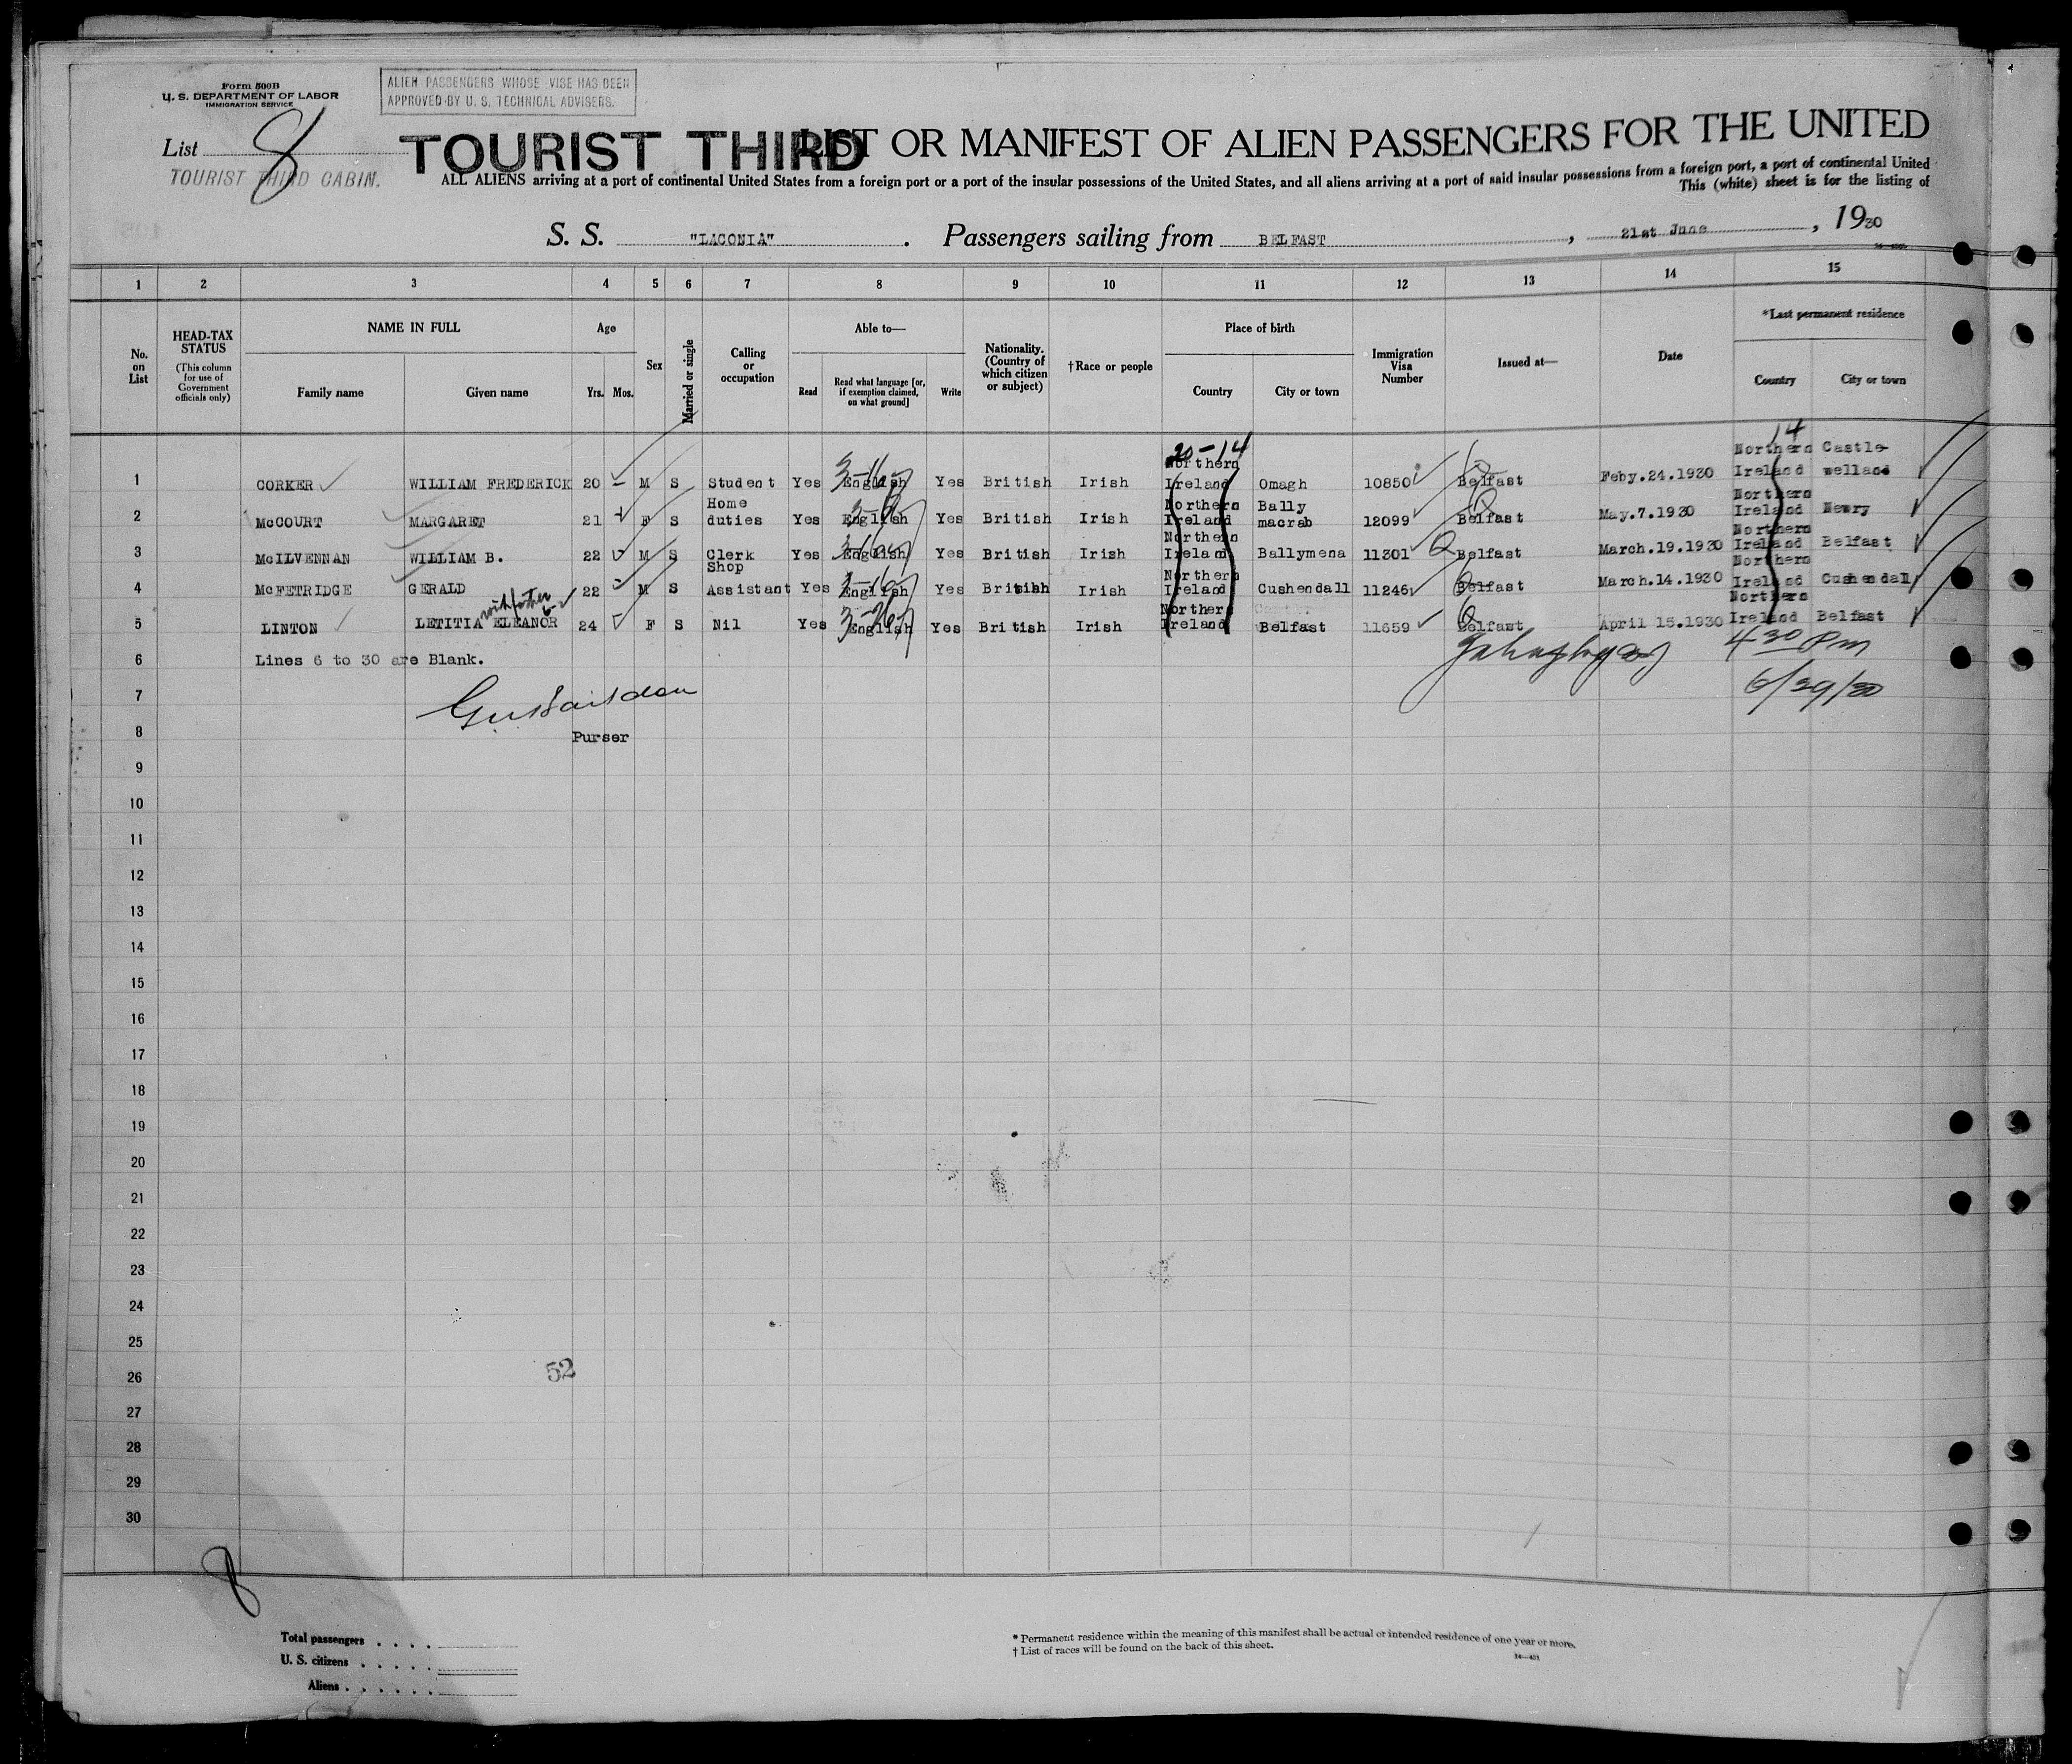 Form 500B
U. S. DEPARTMENT OF LABOR
IMMIGRATION SERVICE
ALIEN PASSENGERS WHOSE VISE HAS BEEN
APPROVED BY U. S. TECHNICAL ADVISERS.
List 8
TOURIST THIRD CABIN.
TOURIST THIRD
LIST OR MANIFEST OF ALIEN PASSENGERS FOR THE UNITED
ALL ALIENS arriving at a port of continental United States from a foreign port or a port of the insular possessions of the United States, and all aliens arriving at a port of said insular possessions from a foreign port, a port of continental United
This (white) sheet is for the listing of
S. S. "LACONIA". Passengers sailing from BELFAST, 21st June, 1930
1 2 3 4 5 6 7 8 9 10 11 12 13 14 15
No. on List
HEAD-TAX STATUS (This column for use of Government officials only)
NAME IN FULL
Family name Given name
Age
Yrs. Mos.
Sex
Married or single
Calling or occupation
Able to—
Read Read what language [or, if exemption claimed, on what ground] Write
Nationality. (Country of which citizen or subject)
†Race or people
Place of birth
Country City or town
Immigration Visa Number
Issued at—
Date
*Last permanent residence
Country City or town
20-14
14
1 CORKER WILLIAM FREDERICK 20 M S Student Yes English Yes British Irish Northern Ireland Omagh 10850 Belfast Feby.24.1930 Northern Ireland Castle-welland
2 McCOURT MARGARET 21 F S Home duties Yes English Yes British Irish Northern Ireland Bally macrab 12099 Belfast May.7.1930 Northern Ireland Newry
3 McILVENNAN WILLIAM B. 22 M S Clerk Yes English Yes British Irish Northern Ireland Ballymena 11301 Belfast March.19.1930 Northern Ireland Belfast
4 McFETRIDGE GERALD 22 M S Shop Assistant Yes English Yes British Irish Northern Ireland Cushendall 11246 Belfast March.14.1930 Northern Ireland Cushendall
with father
5 LINTON LETITIA ELEANOR 24 F S Nil Yes English Yes British Irish Northern Ireland Belfast 11659 Belfast April 15.1930 Northern Ireland Belfast
4 30 Pm
6 Lines 6 to 30 are Blank.
6/29/30
7
Purser
8
9
10
11
12
13
14
15
16
17
18
19
20
21
22
23
24
25
52
26
27
28
29
30
8
Total passengers
U. S. citizens
Aliens
* Permanent residence within the meaning of this manifest shall be actual or intended residence of one year or more.
† List of races will be found on the back of this sheet.